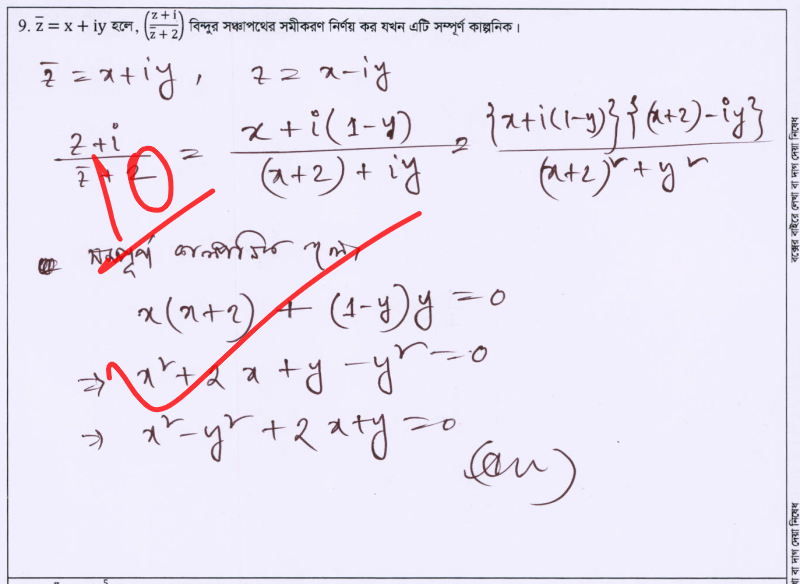 9. z̅ = x + iy হলে, ((z+i)/(z̅+2)) বিন্দুর সঞ্চারপথের সমীকরণ নির্ণয় কর যখন এটি সম্পূর্ণ কাল্পনিক।
z̅ = x+iy, z = x-iy
(z+i)/(z̅+2) = (x+i(1-y))/((x+2)+iy) = ({x+i(1-y)}{(x+2)-iy})/((x+2)²+y²)
10
সম্পূর্ণ কাল্পনিক হলে
x(x+2) + (1-y)y = 0
⇒ x²+2x+y-y²=0
⇒ x²-y²+2x+y=0
(Ans)
বক্সের বাইরে লেখা বা দাগ দেয়া নিষেধ
বা দাগ দেয়া নিষেধ